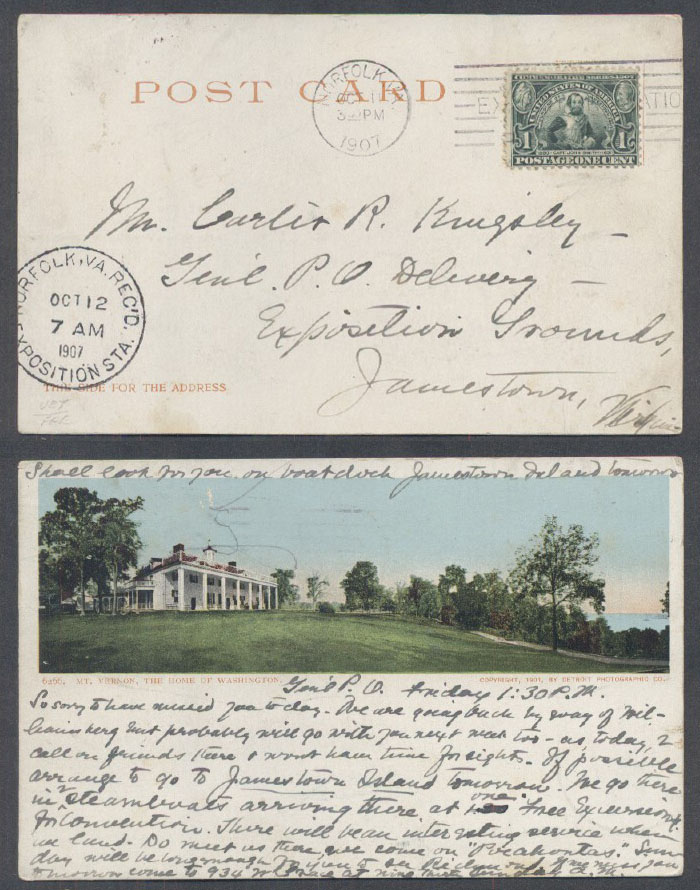 POST CARD
NORFOLK, VA.
OCT 11
3- PM
1907
COMMEMORATIVE SERIES 1907
UNITED STATES OF AMERICA
1 1
POSTAGE ONE CENT
Mr. Curtis R. Kingsley –
Gen'l. P. O. Delivery –
Exposition Grounds,
Jamestown, Virginia
NORFOLK, VA. REC'D.
OCT 12
7 AM
1907
EXPOSITION STA.
THIS SIDE FOR THE ADDRESS
Shall look for you on boat dock Jamestown Island tomorrow
6266. MT. VERNON, THE HOME OF WASHINGTON. COPYRIGHT, 1901, BY DETROIT PHOTOGRAPHIC CO.
Gen'l P. O. Friday 1:30 P.M.
So sorry to have missed you to-day. We are going back by way of Wil-
liamsburg but probably will go with you next week too – as, today, I
call on friends there & wont have time for sights. If possible
arrange to go to Jamestown Island tomorrow. We go there
in 2 steamboats arriving there at one. Free Excursion
for Convention. There will be an interesting service when
we land. Do meet us there we come on "Pocahontas." Sun-
day will be long enough for you to see
tomorrow come to 934 at nine